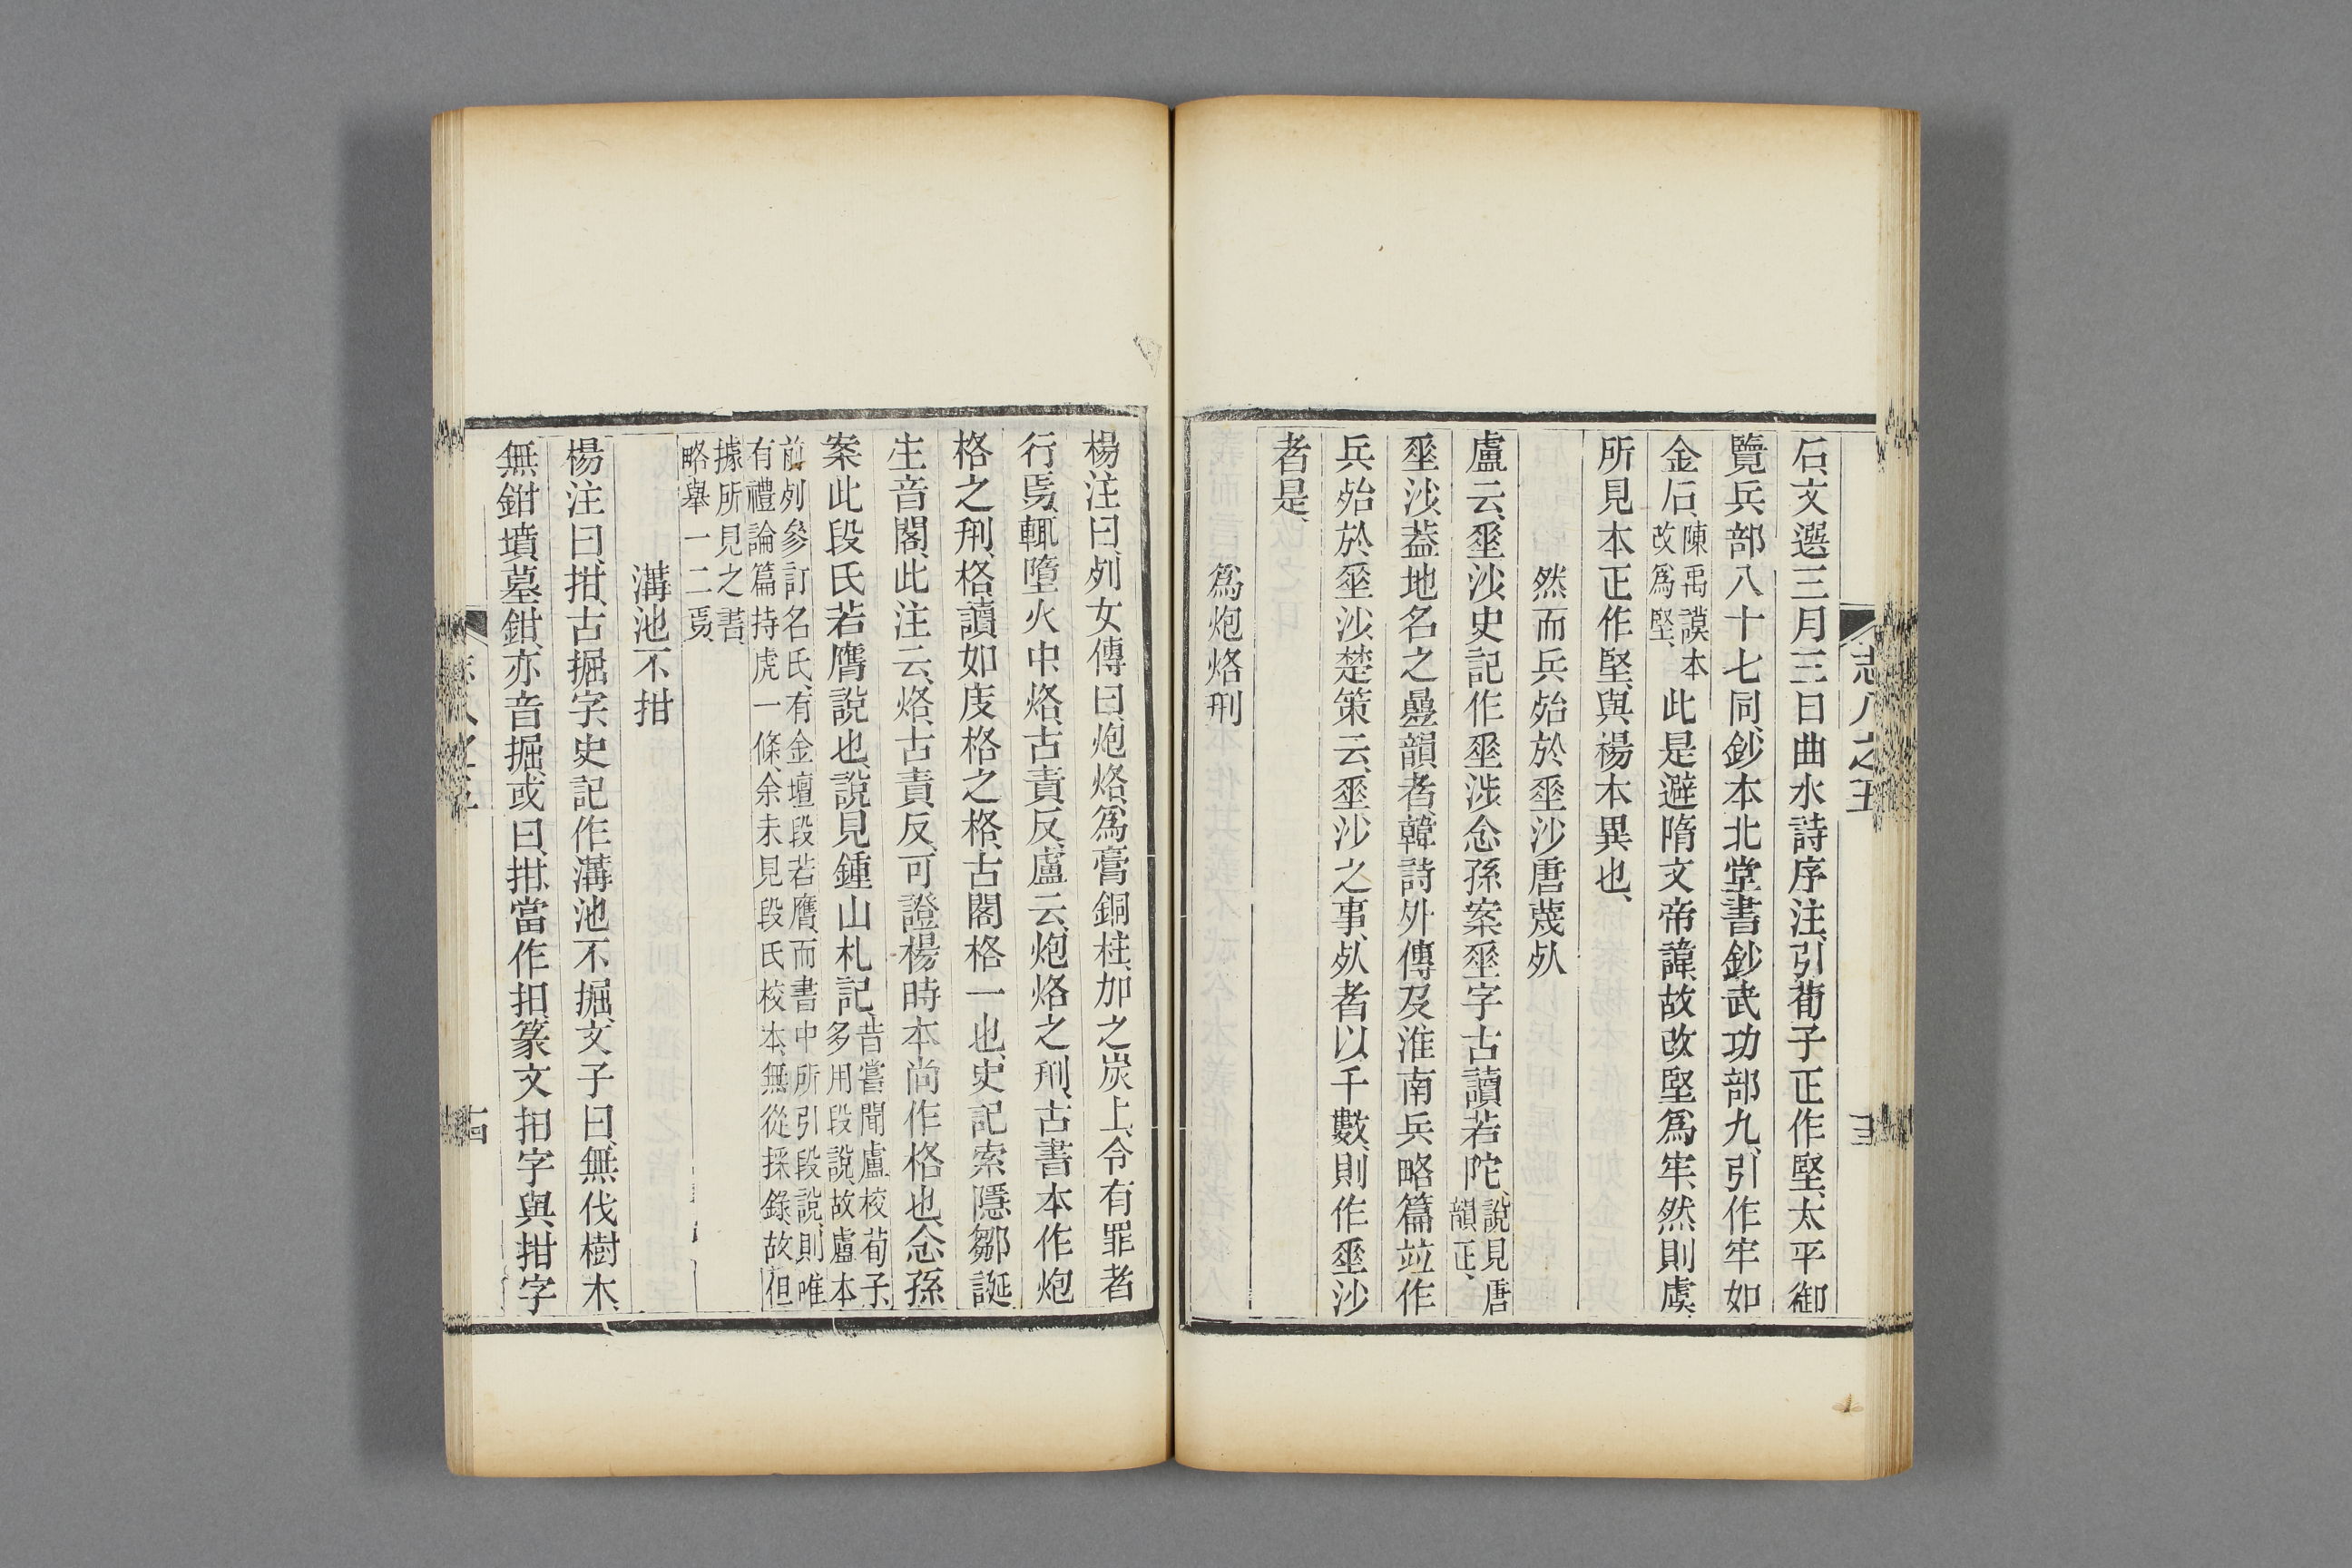 石、文選三月三日曲水詩序注、引荀子正作堅、太平御
覽兵部八十七同、鈔本北堂書鈔武功部九、引作牢如
金石、陳禹謨本
改爲堅、
此是避隋文帝諱、故改堅爲牢、然則虞、
所見本正作堅、與楊本異也、
然而兵殆於垂沙唐蔑死
盧云、垂沙、史記作垂涉、念孫案、垂字古讀若陀、說見唐
韻正、
垂沙、葢地名之曡韻者、韓詩外傳及淮南兵略篇竝作
兵殆於垂沙、楚策云、垂沙之事、死者以千數、則作垂沙
者是、
爲炮烙刑
楊注曰、列女傳曰、炮烙、爲膏銅柱、加之炭上、令有罪者
行焉、輒墮火中、烙、古責反、盧云、炮烙之刑、古書本作炮
格之刑、格讀如庋格之格、古閣格一也、史記索隱鄒誕
生音閣、此注云、烙、古責反、可證楊時本尚作格也、念孫
案此段氏若膺說也、說見鍾山札記、昔嘗聞盧校荀子、
多用段說、故盧本
前列參訂名氏、有金壇段若膺、而書中所引段說、則唯
有禮論篇持虎一條、余未見段氏校本、無從採錄、故但
據所見之書、
略舉一二焉、
溝池不拑
楊注曰、拑、古掘字、史記作溝池不掘、文子曰、無伐樹木、
無鉗墳墓、鉗、亦音掘、或曰、拑、當作抇、篆文抇字與拑字
志八之五